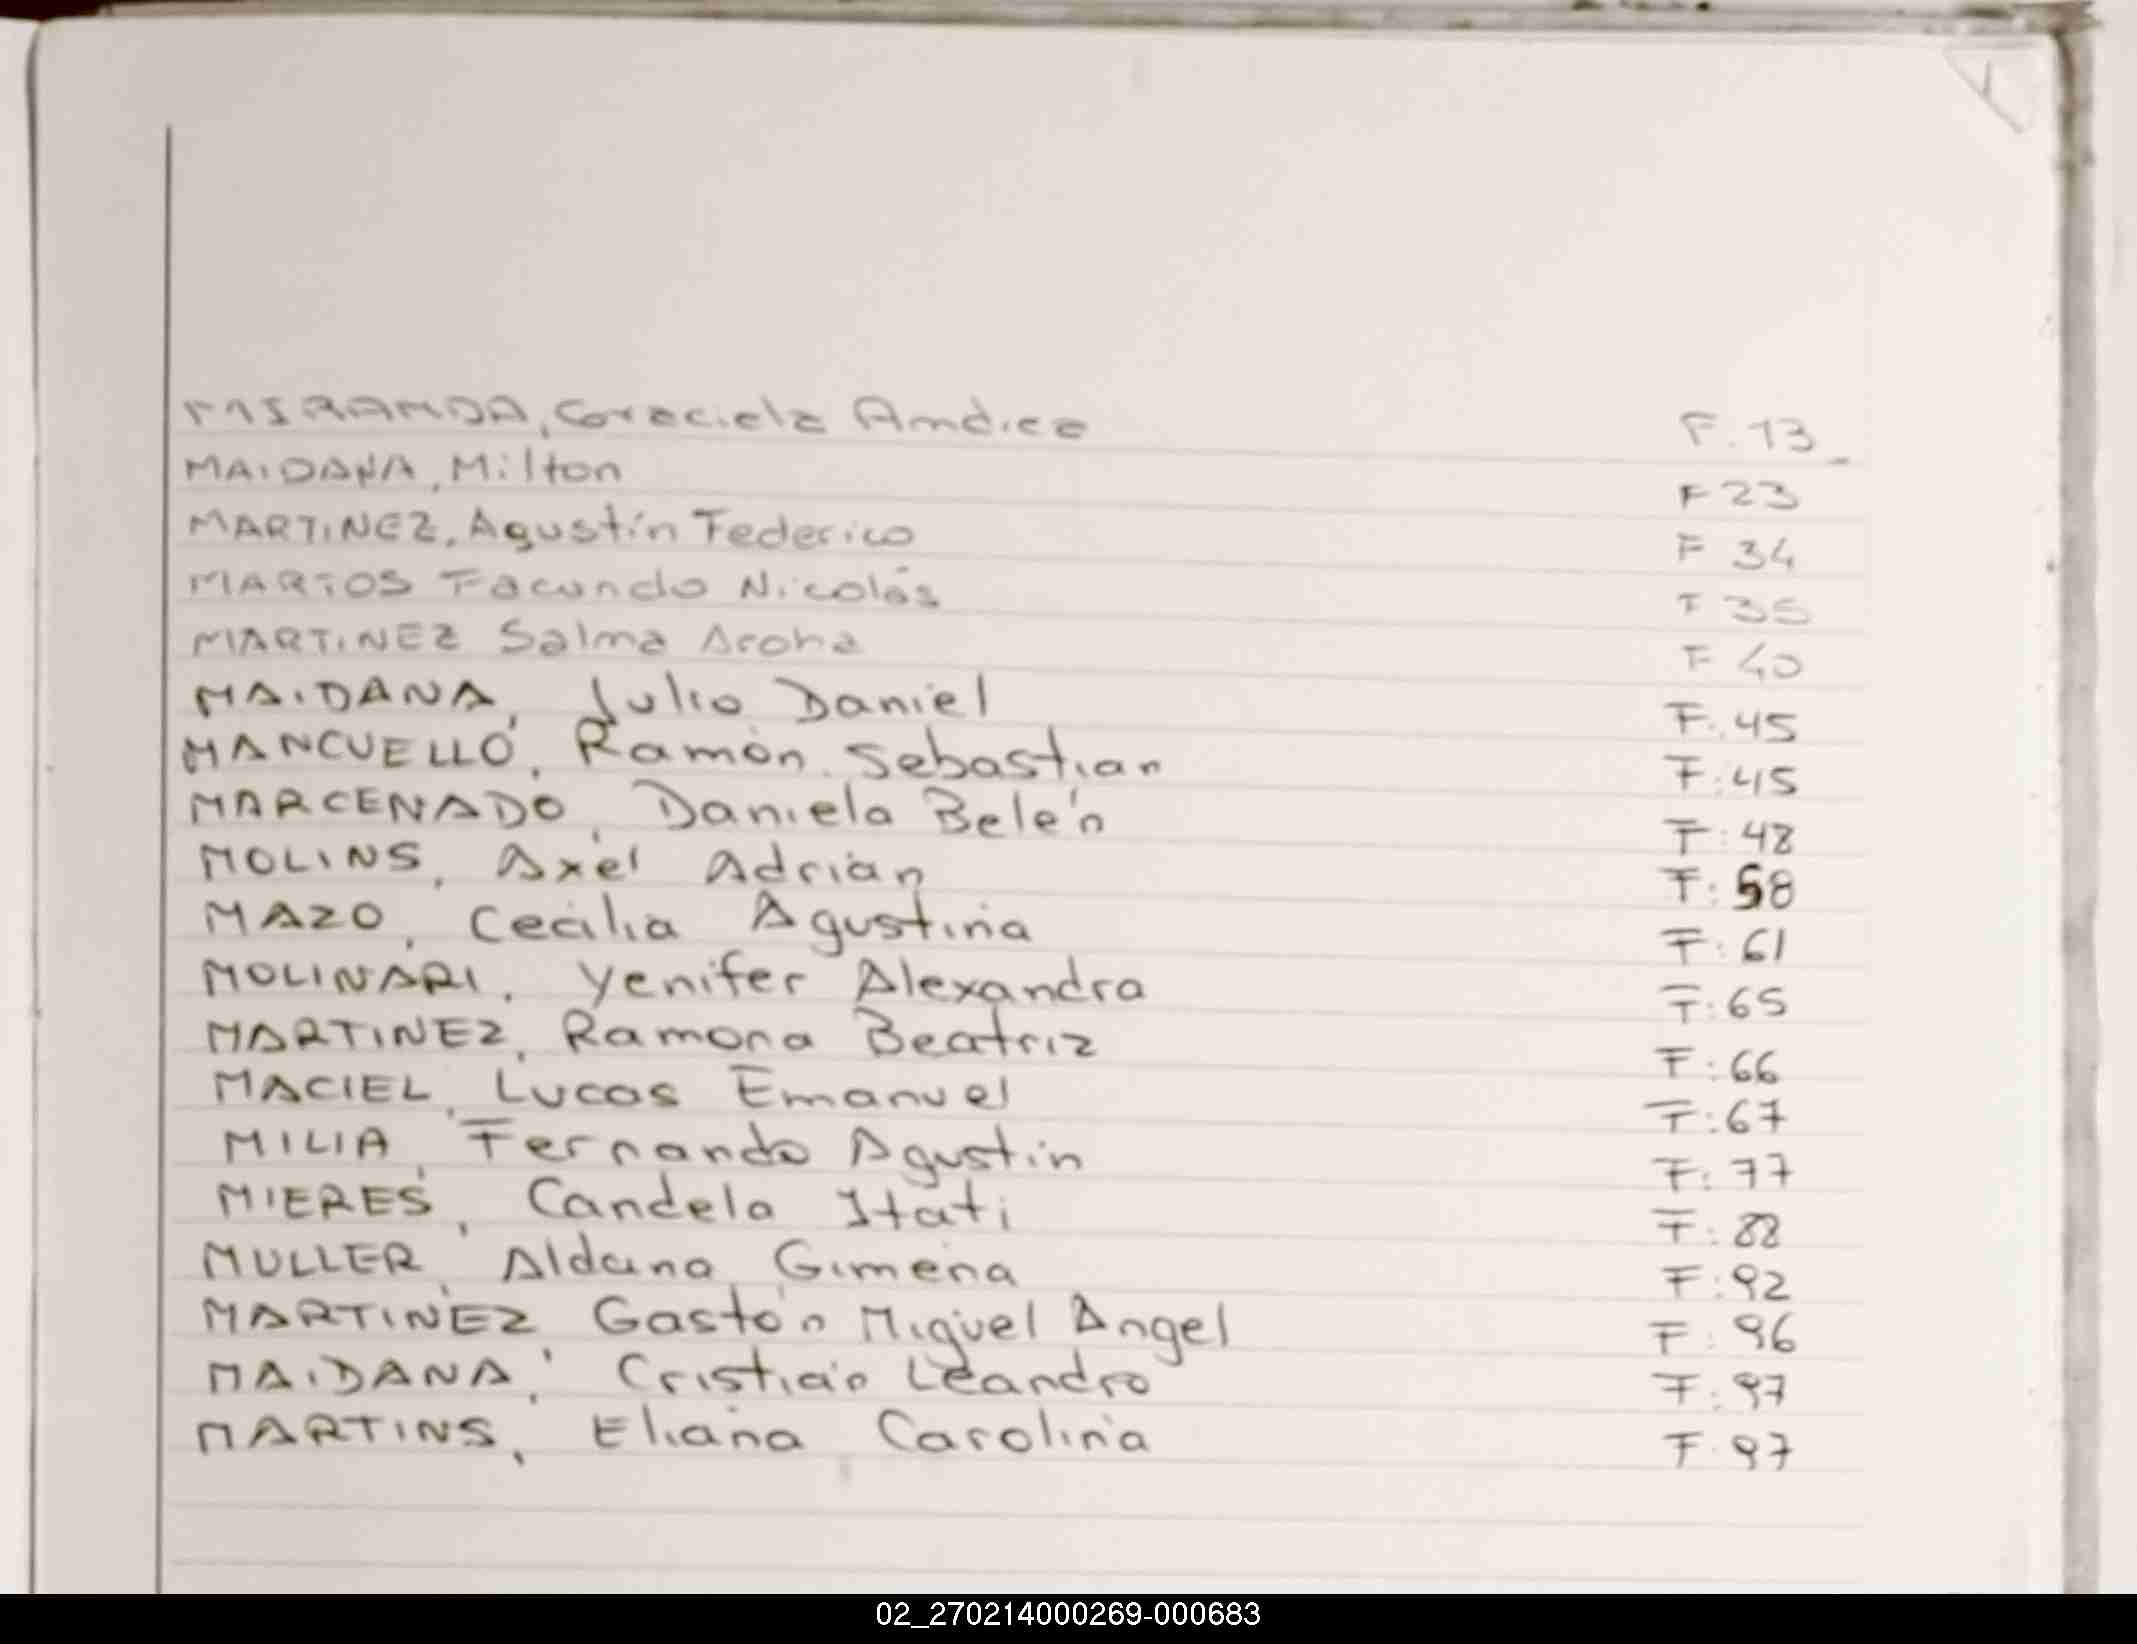 MIRANDA, Graciela Andrea F. 13
MAIDANA, Milton F 23
MARTINEZ, Agustín Federico F 34
MARTOS Facundo Nicolás F 35
MARTINEZ Salma Aroha F 40
MAIDANA, Julio Daniel F. 45
MANCUELLO, Ramón Sebastian F: 45
MARCENADO, Daniela Belén F: 48
MOLINS, Axel Adrian F: 58
MAZO, Cecilia Agustina F: 61
MOLINARI, Yenifer Alexandra F: 65
MARTINEZ, Ramona Beatriz F: 66
MACIEL, Lucas Emanuel F: 67
MILIA, Fernando Agustin F: 77
MIERES, Candela Itati F: 88
MULLER, Aldana Gimena F: 92
MARTINEZ, Gastón Miguel Angel F: 96
MAIDANA, Cristián Leandro F: 97
MARTINS, Eliana Carolina F. 97
02_270214000269-000683